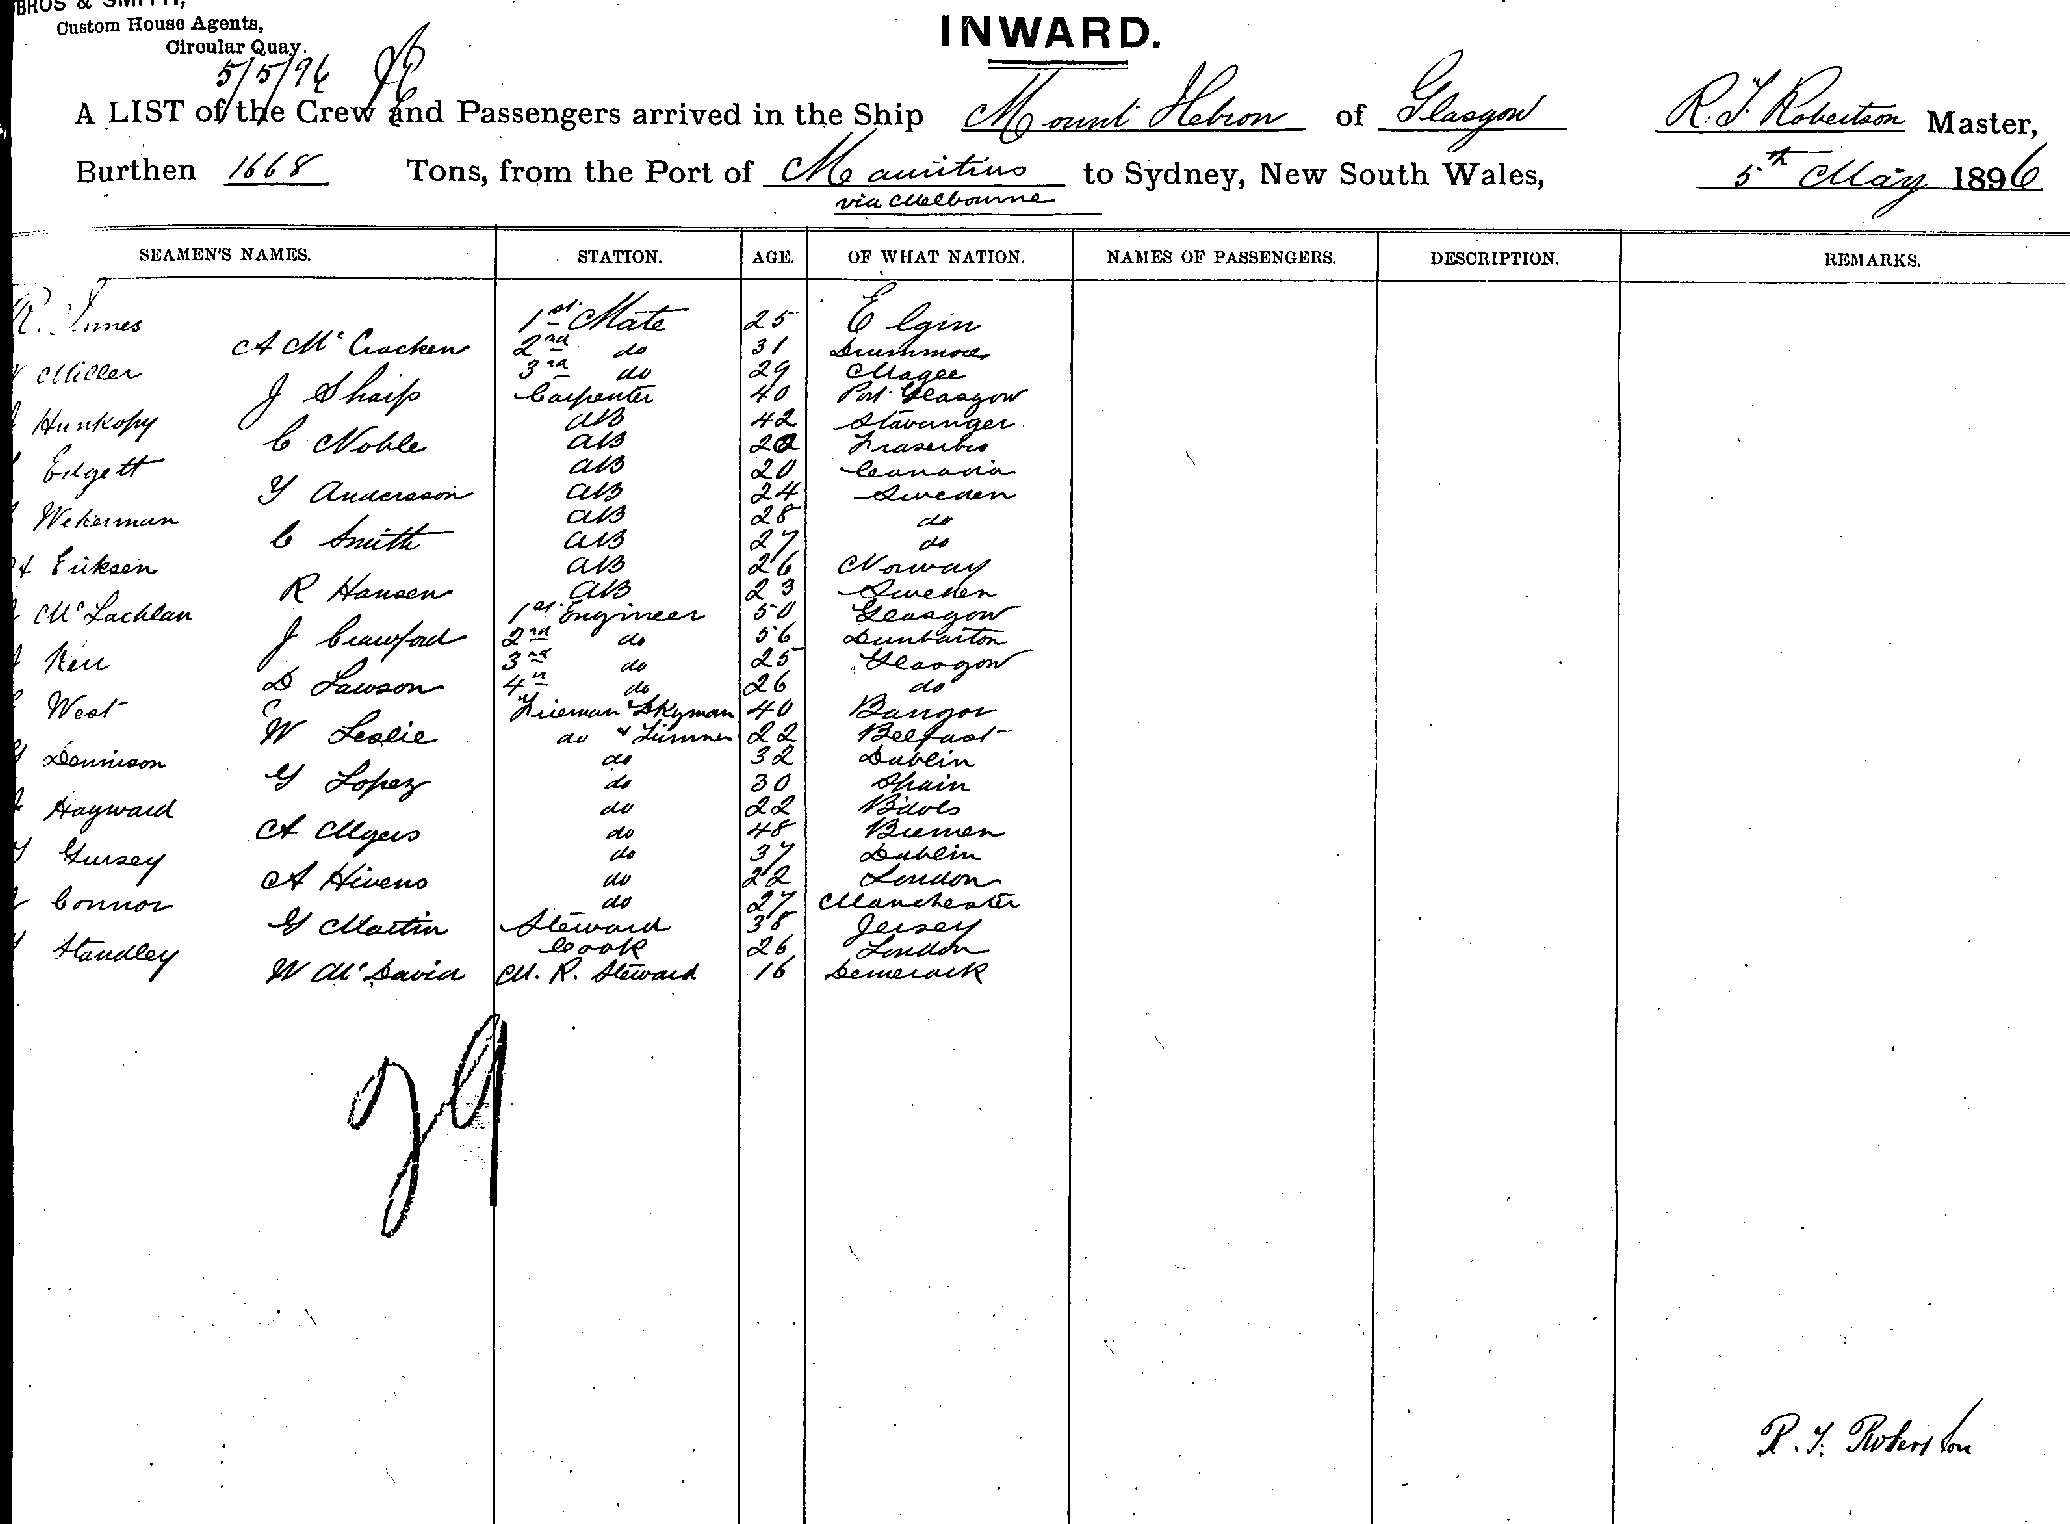 BROS & SMITH,
Custom House Agents,
Circular Quay.
5/5/96
INWARD.
A LIST of the Crew and Passengers arrived in the Ship Mount Hebron of Glasgow R. T. Robertson Master,
Burthen 1668 Tons, from the Port of Mauritius to Sydney, New South Wales, 5th May 1896
via Melbourne
SEAMEN'S NAMES. STATION. AGE. OF WHAT NATION. NAMES OF PASSENGERS. DESCRIPTION. REMARKS.
R. Innes 1st Mate 25 Elgin
A McCracken 2nd do 31 Drummore
Miller 3rd do 29 Magee
J Sharp Carpenter 40 Port Glasgow
Hunkopy AB 42 Stavanger
C Noble AB 22 Fraserbro
Edgett AB 20 Canada
G Andersson AB 24 Sweden
Wekerman AB 28 do
C Smith AB 27 do
Eriksen AB 26 Norway
R Hansen AB 23 Sweden
McLachlan 1st Engineer 50 Glasgow
J Crawford 2nd do 56 Dunbarton
Kerr 3rd do 25 Glasgow
D Lawson 4th do 26 do
West Fireman 40 Bangor
W Leslie do & Trimmer 22 Belfast
Dennison do 32 Dublin
G Lopez do 30 Spain
Hayward do 22
A Myers do 48 Bremen
Gursey do 37 Dublin
A Hivens do 22 London
Connor do 27 Manchester
G Martin Steward 38 Jersey
Standley Cook 26 London
W McDavid M. R. Steward 16
29
R. T. Robertson